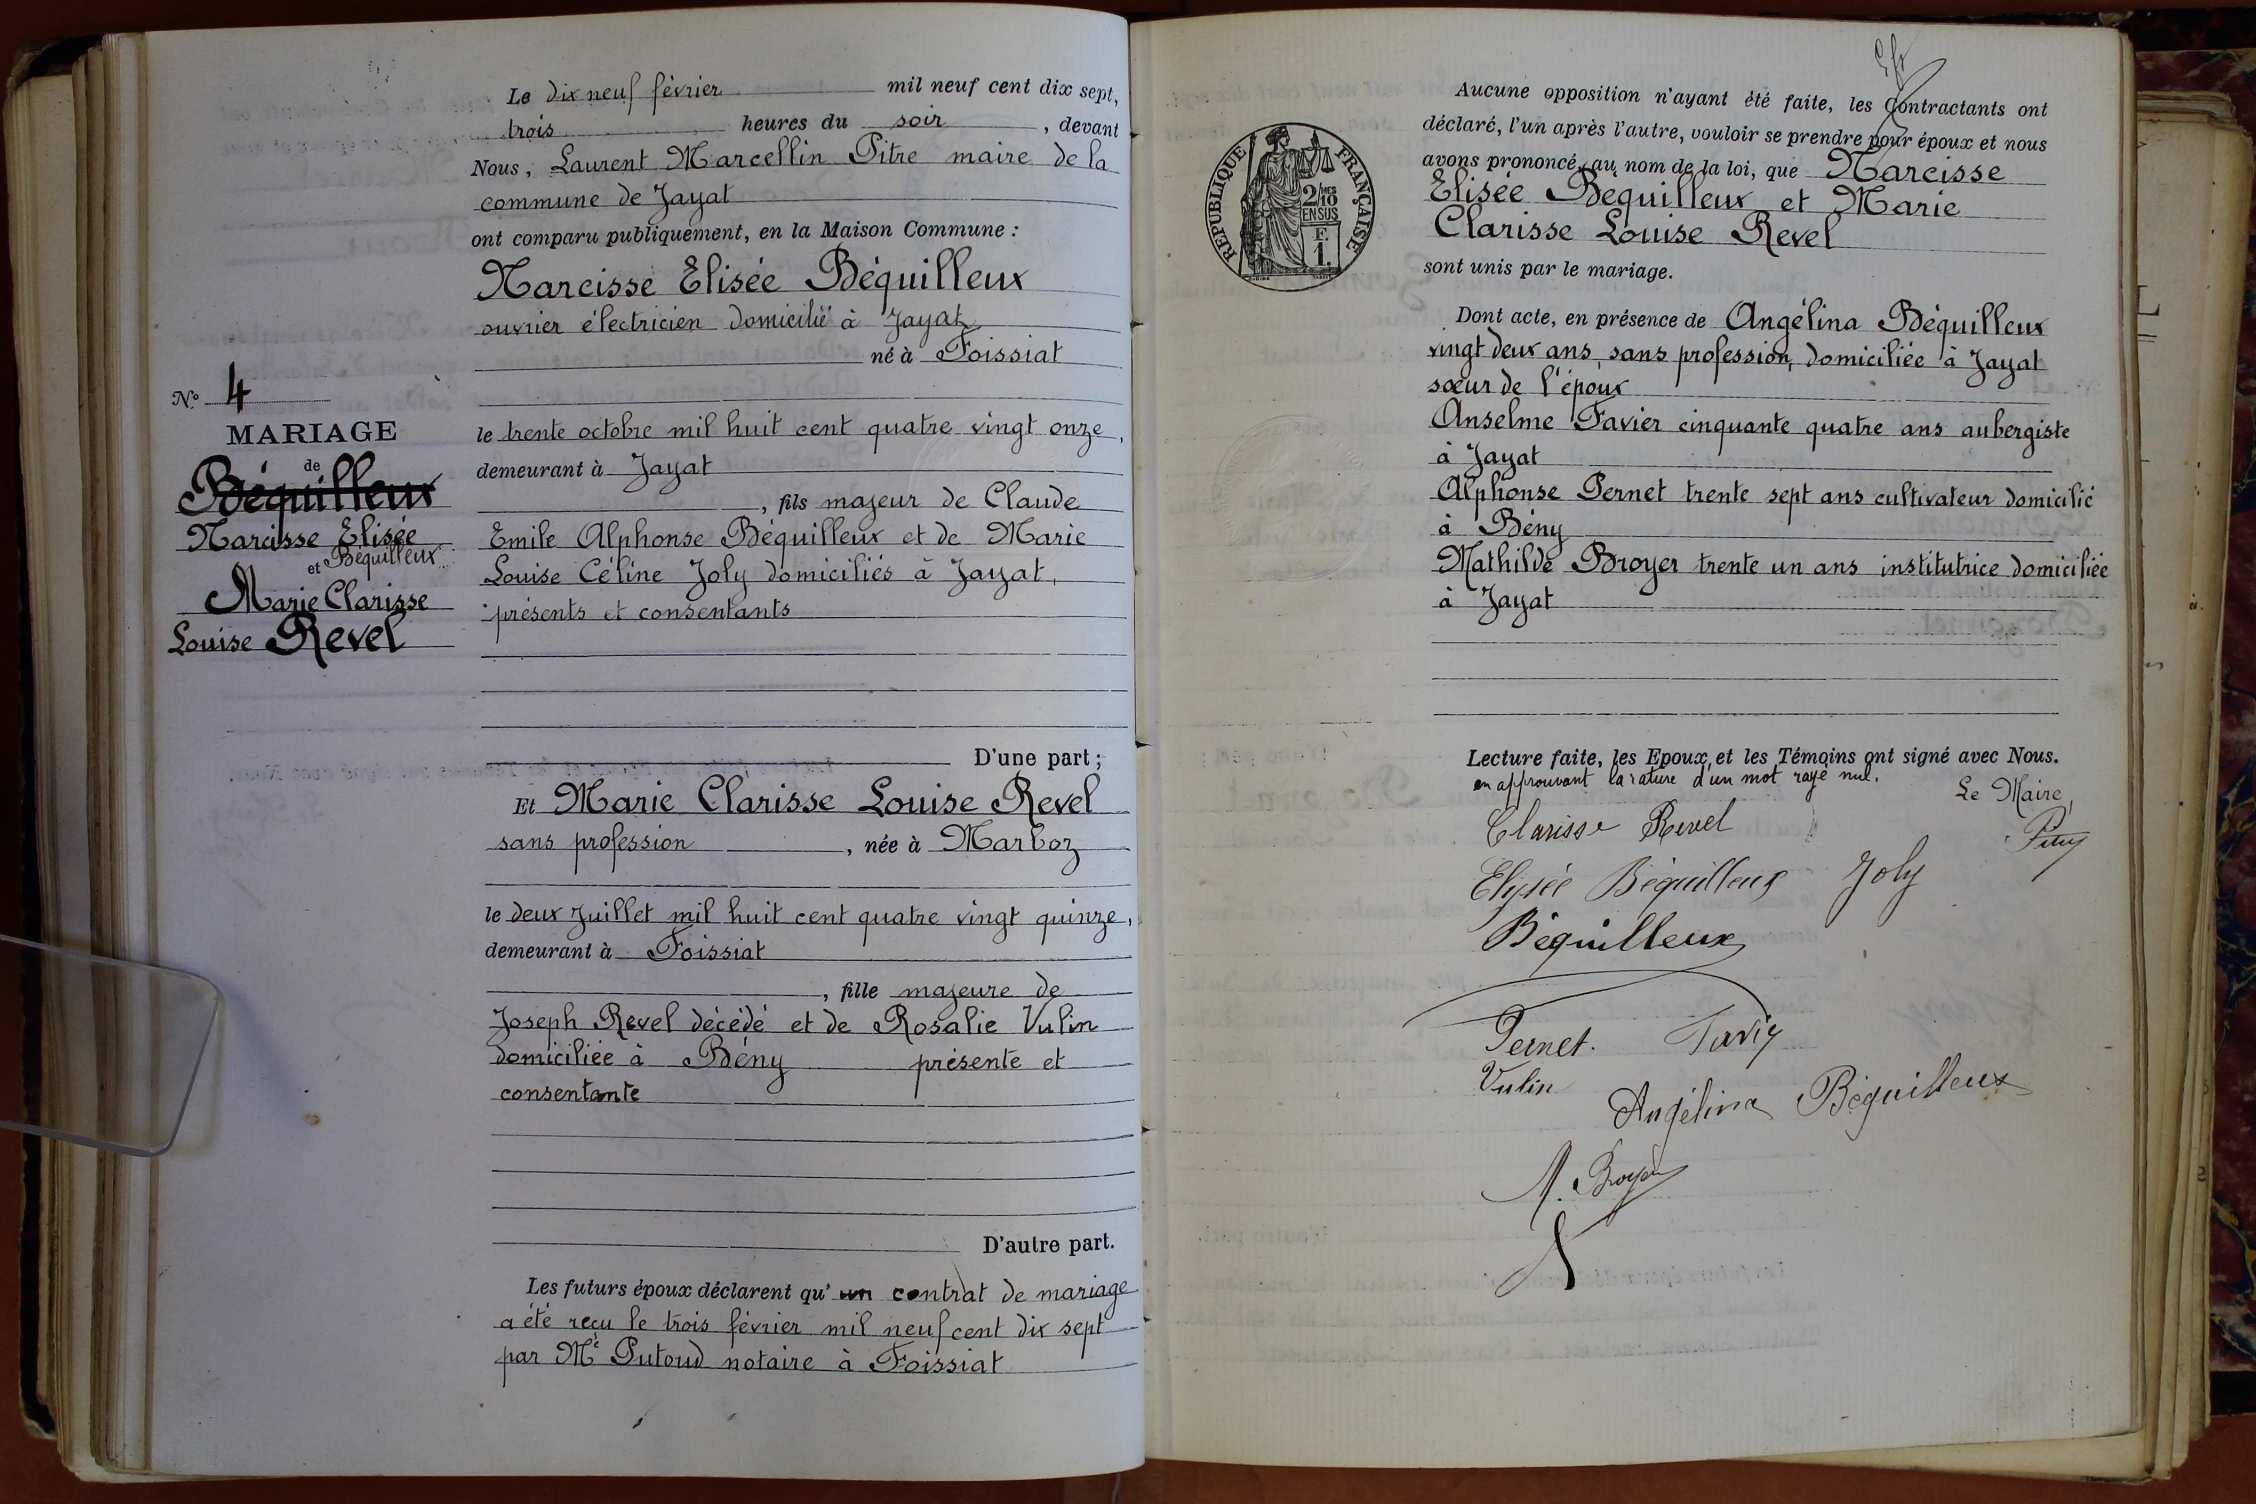 Le dix neuf février mil neuf cent dix sept,
trois heures du soir, devant
Nous, Laurent Marcellin Pitre maire de la
commune de Jayat
ont comparu publiquement, en la Maison Commune :
Narcisse Elisée Béquilleux
ouvrier électricien domicilié à Jayat
né à Foissiat
le trente octobre mil huit cent quatre vingt onze,
demeurant à Jayat
, fils majeur de Claude
Emile Alphonse Béquilleux et de Marie
Louise Céline Joly domiciliés à Jayat,
présents et consentants
D'une part ;
Et Marie Clarisse Louise Revel
sans profession, née à Marboz
le deux Juillet mil huit cent quatre vingt quinze,
demeurant à Foissiat
, fille majeure de
Joseph Revel décédé et de Rosalie Vulin
domiciliée à Bény présente et
consentante
D'autre part.
Les futurs époux déclarent qu'un contrat de mariage
a été reçu le trois février mil neuf cent dix sept
par Me Putoud notaire à Foissiat
No 4
MARIAGE
de
Béquilleux
Narcisse Elisée
et Béquilleux
Marie Clarisse
Louise Revel
REPUBLIQUE FRANÇAISE
2/10
EN SUS
F.
1.
Aucune opposition n'ayant été faite, les Contractants ont
déclaré, l'un après l'autre, vouloir se prendre pour époux et nous
avons prononcé, au nom de la loi, que Narcisse
Elisée Béquilleux et Marie
Clarisse Louise Revel
sont unis par le mariage.
Dont acte, en présence de Angélina Béquilleux
vingt deux ans, sans profession, domiciliée à Jayat
sœur de l'époux
Anselme Favier cinquante quatre ans aubergiste
à Jayat
Alphonse Pernet trente sept ans cultivateur domicilié
à Bény
Mathilde Broyer trente un ans institutrice domiciliée
à Jayat
Lecture faite, les Epoux et les Témoins ont signé avec Nous.
en approuvant la rature d'un mot rayé nul.
Le Maire,
Clarisse Revel
Elysée Béquilleux Joly
Béquilleux
Pernet. Favier
Vulin
Angélina Béquilleux
M. Broyer